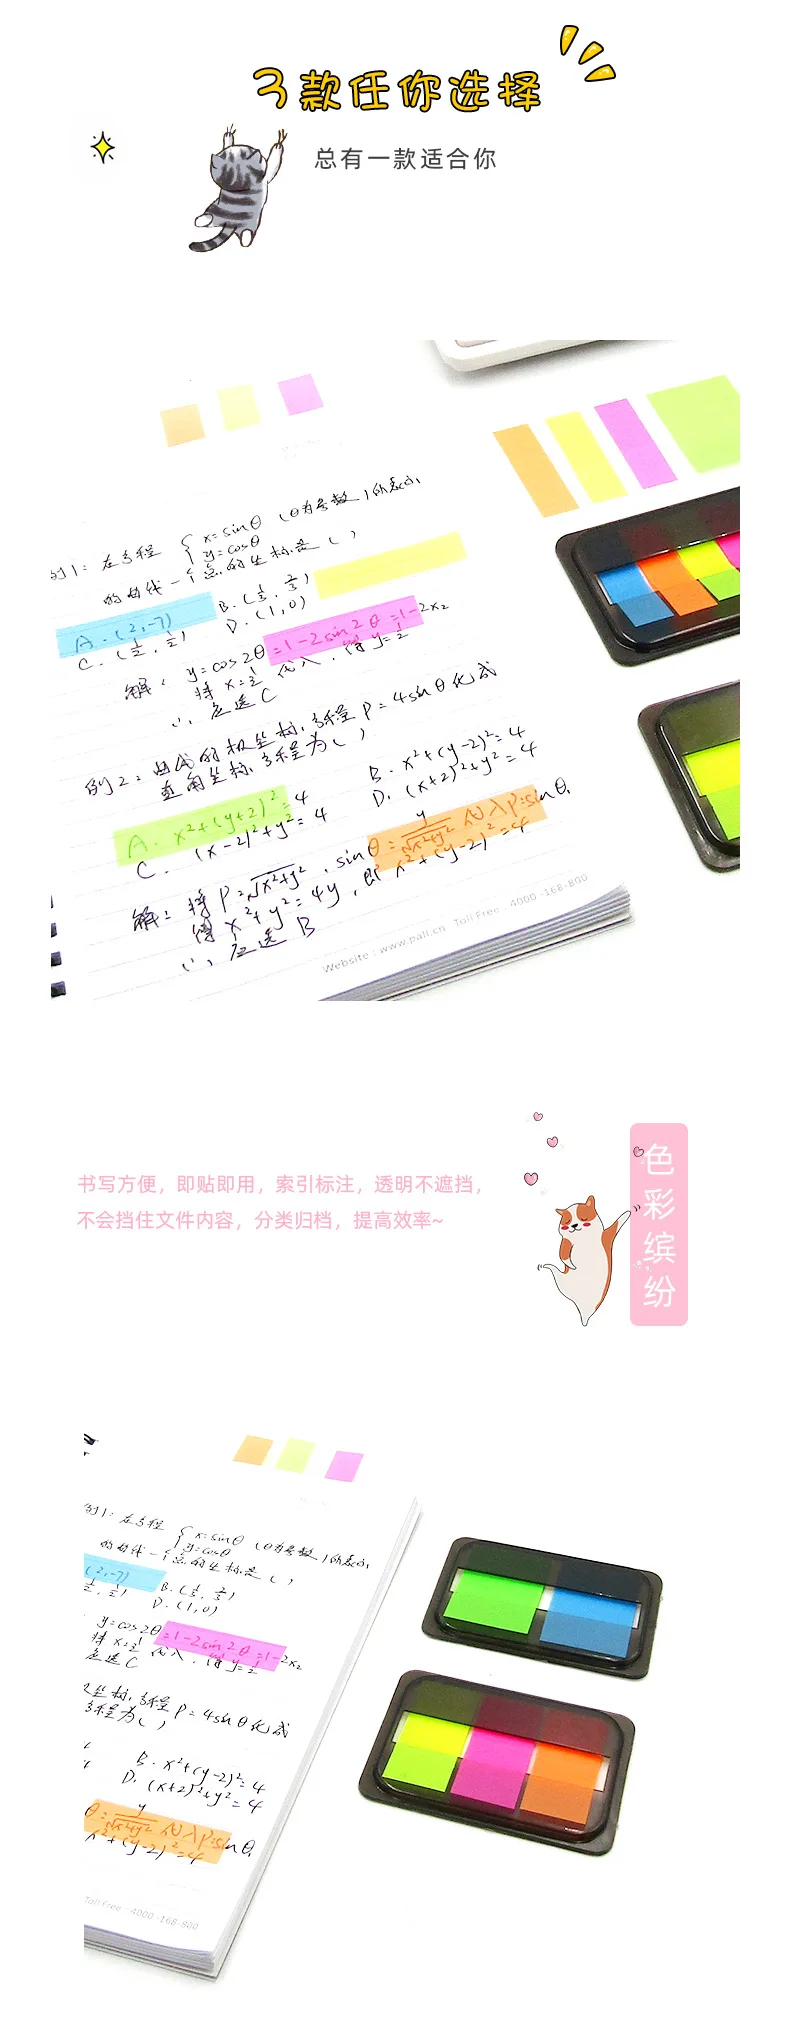 3款任你选择
总有一款适合你
例1：在方程 { x=sinθ y=cosθ (θ为参数)所表示
的曲线一个点的坐标是( )
A.(2,-7) B.(1/3, 2/3)
C.(1/2, 1/2) D.(1,0)
解：y=cos2θ=1-2sin2θ=1-2x2
将x=1/2代入,得y=1/2
∴应选C
例2：曲线的极坐标方程ρ=4sinθ化成
直角坐标方程为( )
A. x²+(y+2)²=4 B. x²+(y-2)²=4
C. (x-2)²+y²=4 D. (x+2)²+y²=4
解：将ρ=√x²+y², sinθ=y/√x²+y²代入ρ=sinθ,
得x²+y²=4y,即x²+(y-2)²=4
∴应选B
Website：www.pall.cn Toll Free：4000-168-800
书写方便，即贴即用，索引标注，透明不遮挡，
不会挡住文件内容，分类归档，提高效率~
色彩缤纷
例1：在方程 { x=sinθ y=cosθ (θ为参数)所表示
的曲线一个点的坐标是( )
(2,-7) B.(1/3, 2/3)
1/2, 1/2) D.(1,0)
y=cos2θ=1-2sin2θ=1-2x2
将x=1/2代入,得y=1/2
应选C
极坐标方程ρ=4sinθ化成
方程为( )
B. x²+(y-2)²=4
D. (x+2)²+y²=4
θ=y/√x²+y²代入ρ=sinθ,
x²+(y-2)²=4
Toll Free：4000-168-800